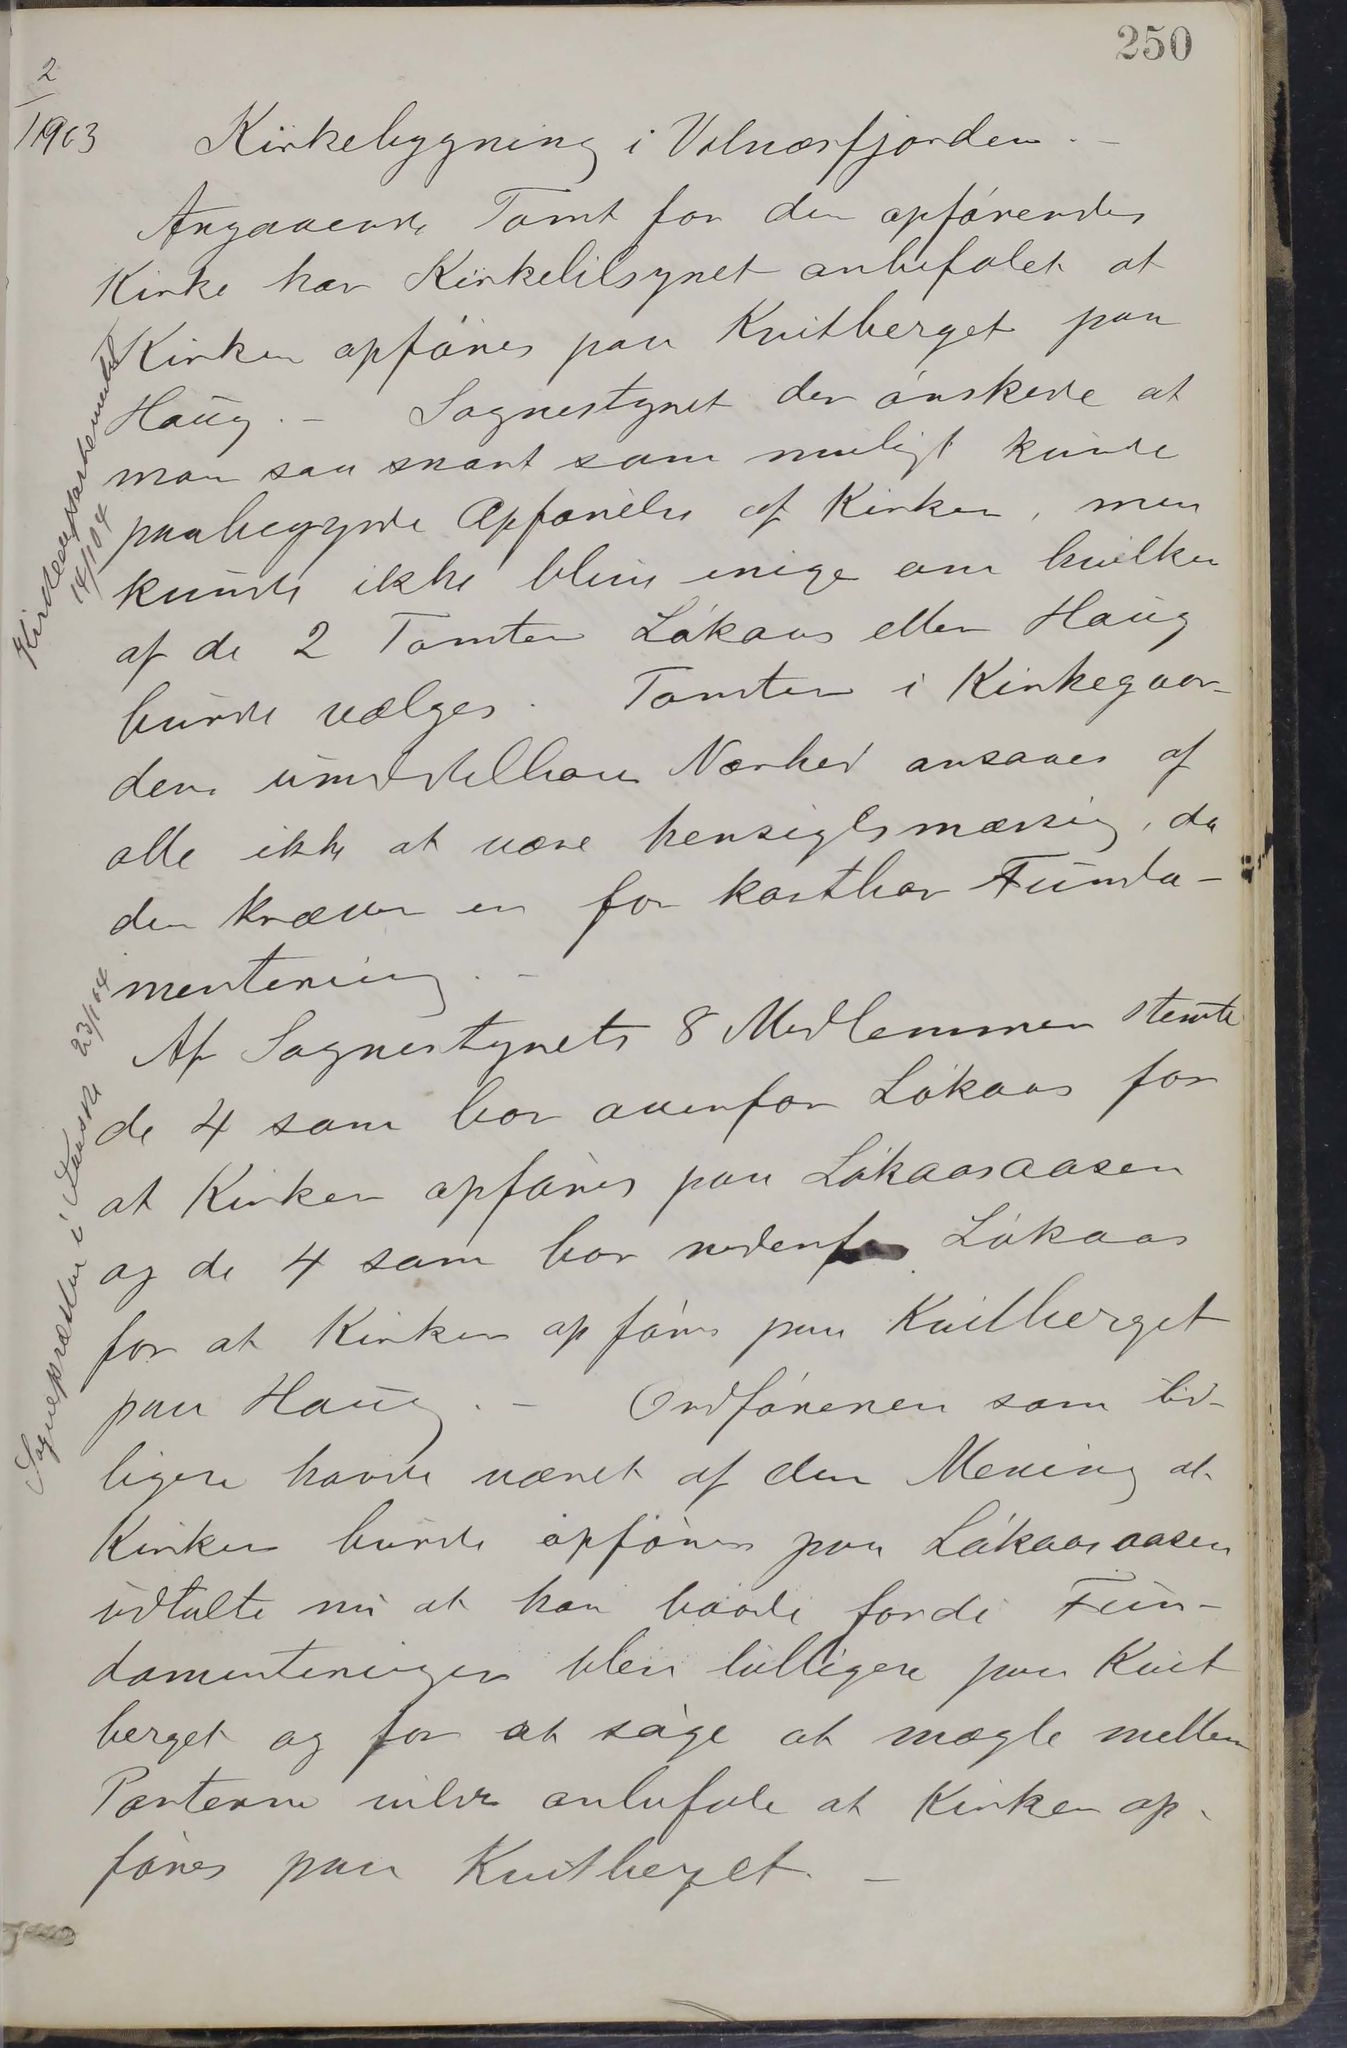 250
2
1903
Kirkebygning i Valnæsfjorden. -
Angaaende Tomt for den opførendes
Kirke har Kirketilsynet anbefalet at
Kirken opføres paa Kvitberget paa
Haug. - Sognestyret der ønskede at
man saa snart som muligt kunde
paabegynde Opførelse af Kirken, men
kunde ikke blive enige om hvilken
af de 2 Tomter Løkaas eller Haug
burde vælges. Tomten i Kirkegaar-
dens umiddelbare Nærhed ansaaes af
alle ikke at være hensigtsmæssig, da
den kræver en for kostbar Funda-
mentering. -
Af Sognestyrets 8 Medlemmer stemte
de 4 som bor ovenfor Løkaas for
at Kirken opføres paa Løkaasaasen
og de 4 som bor nedenfor Løkaas
for at Kirken opføres paa Kvitberget
paa Haug. - Ordføreren som tid-
ligere havde været af den Mening at
Kirken burde opføres paa Løkaasaasen
udtalte nu at han baade fordi Fun-
damenteringen blev billigere paa Kvit
berget og for at søge at mægle mellem
Parterne vilde anbefale at Kirken op-
føres paa Kvitberget. -
Kirkedepartementet
14/1 04
Sognepræsten i Fauske 23/1 04